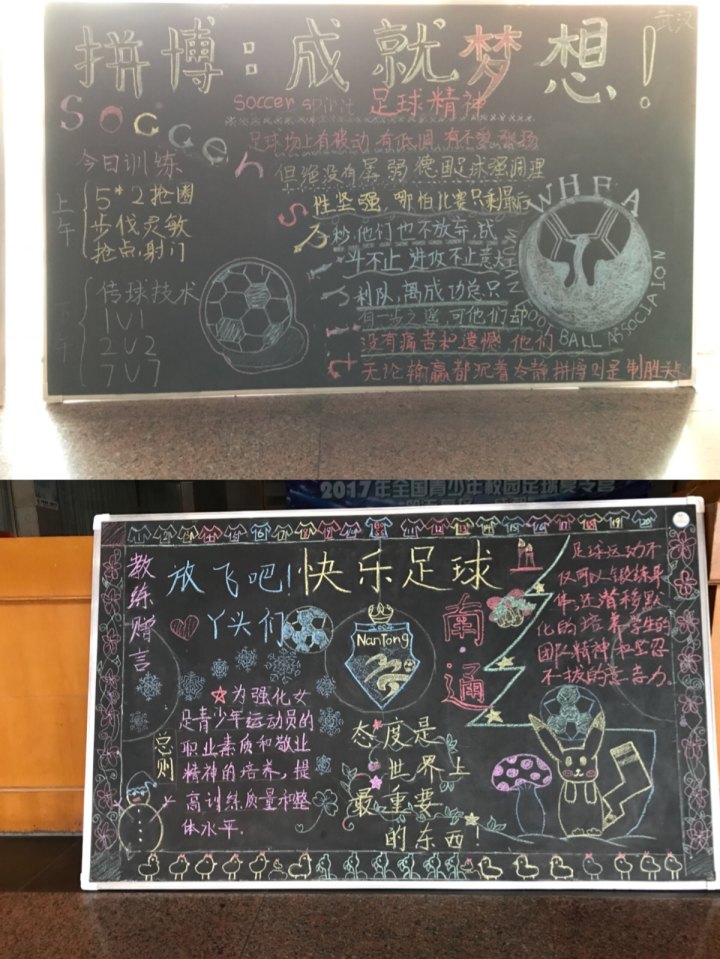 武汉
拼博:成就梦想!
soccer spirit 足球精神
SOCCER
今日训练
上午
5*2抢圈
步伐灵敏
抢点.射门
下午
传球技术
1V1
2V2
7V7
足球场上有被动,有低调,有不要
但绝没有孱弱,德国足球强调理
性坚强,哪怕比赛只剩最后
秒,他们也不放弃,战
斗不止,进攻不止意大
利队,离成功总只
有一步之遥,可他们却
没有痛苦和遗憾,他们
无论输赢都沉着冷静 拼博则是制胜关
WHFA
WUHAN FOOTBALL ASSOCIATION
2017年全国青少年校园足球夏令营
1 2 3 4 5 6 7 8 9 10 11 12 13 14 15 16 17 18 19 20
教练赠言
放飞吧! 快乐足球
丫头们
NanTong
南·通
足球运动不
仅可以锻练身
体,还潜移默
化的培养学生的
团队精神和坚忍
不拔的意志力.
总则
为强化女
足青少年运动员的
职业素质和敬业
精神的培养,提
高训练质量和整
体水平.
态度是
世界上
最重要
的东西!